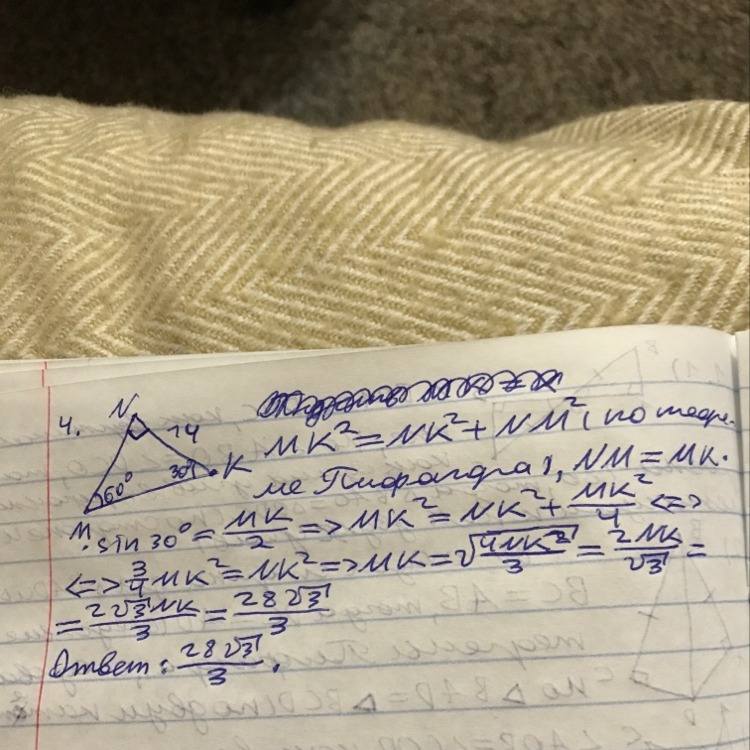 4.
N
14
60°
30°
K
M
MK² = NK² + NM² (по теоре-
ме Пифагора), NM = MK ·
· sin 30° = MK/2 => MK² = NK² + MK²/4 <=>
<=> 3/4 MK² = NK² => MK = √(4NK²/3) = 2NK/√3 =
= 2√3NK/3 = 28√3/3
Ответ: 28√3/3.